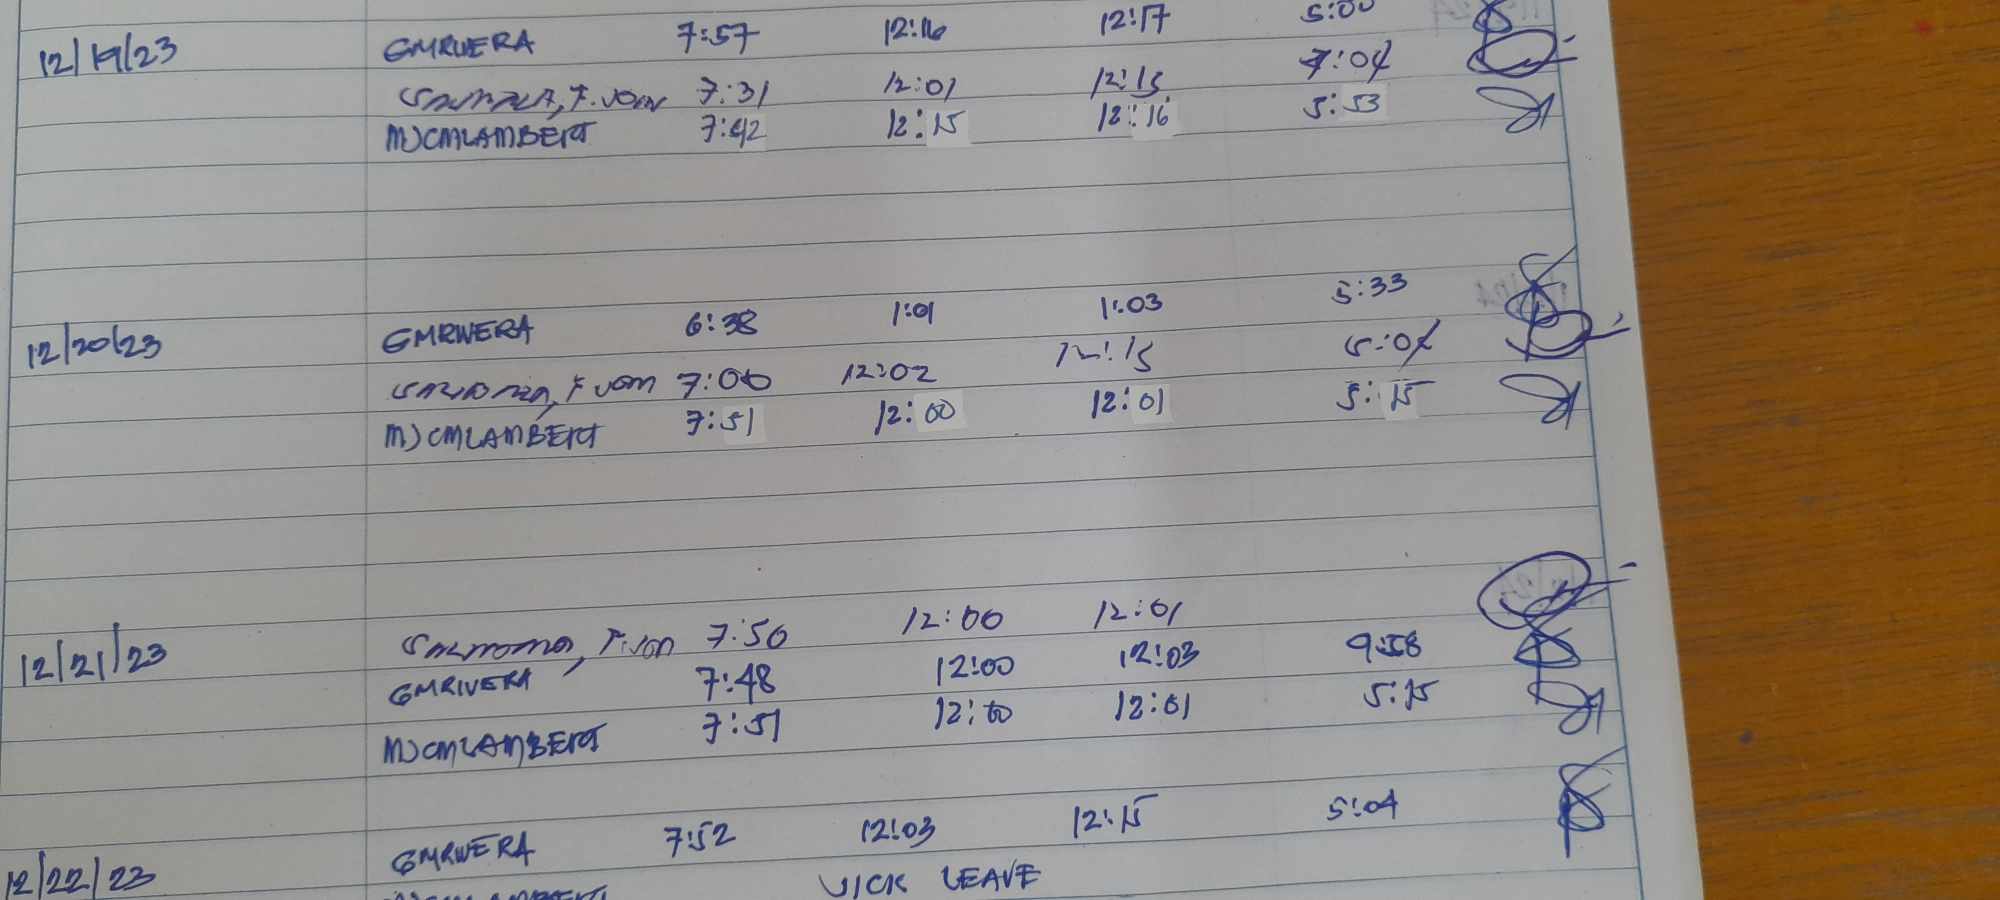 12/19/23 GMRIVERA 7:57 12:16 12:17 5:00
7:31 12:01 12:15 7:04
MJCMLAMBERT 7:42 12:15 12:16 5:53
12/20/23 GMRIVERA 6:38 1:01 1:03 5:33
7:00 12:02 12:15 5:07
MJCMLAMBERT 7:51 12:00 12:01 5:15
12/21/23 7:50 12:00 12:01
GMRIVERA 7:48 12:00 12:03 9:58
MJCMLAMBERT 7:51 12:00 12:01 5:15
12/22/23 GMRIVERA 7:52 12:03 12:15 5:04
MJCMLAMBERT SICK LEAVE